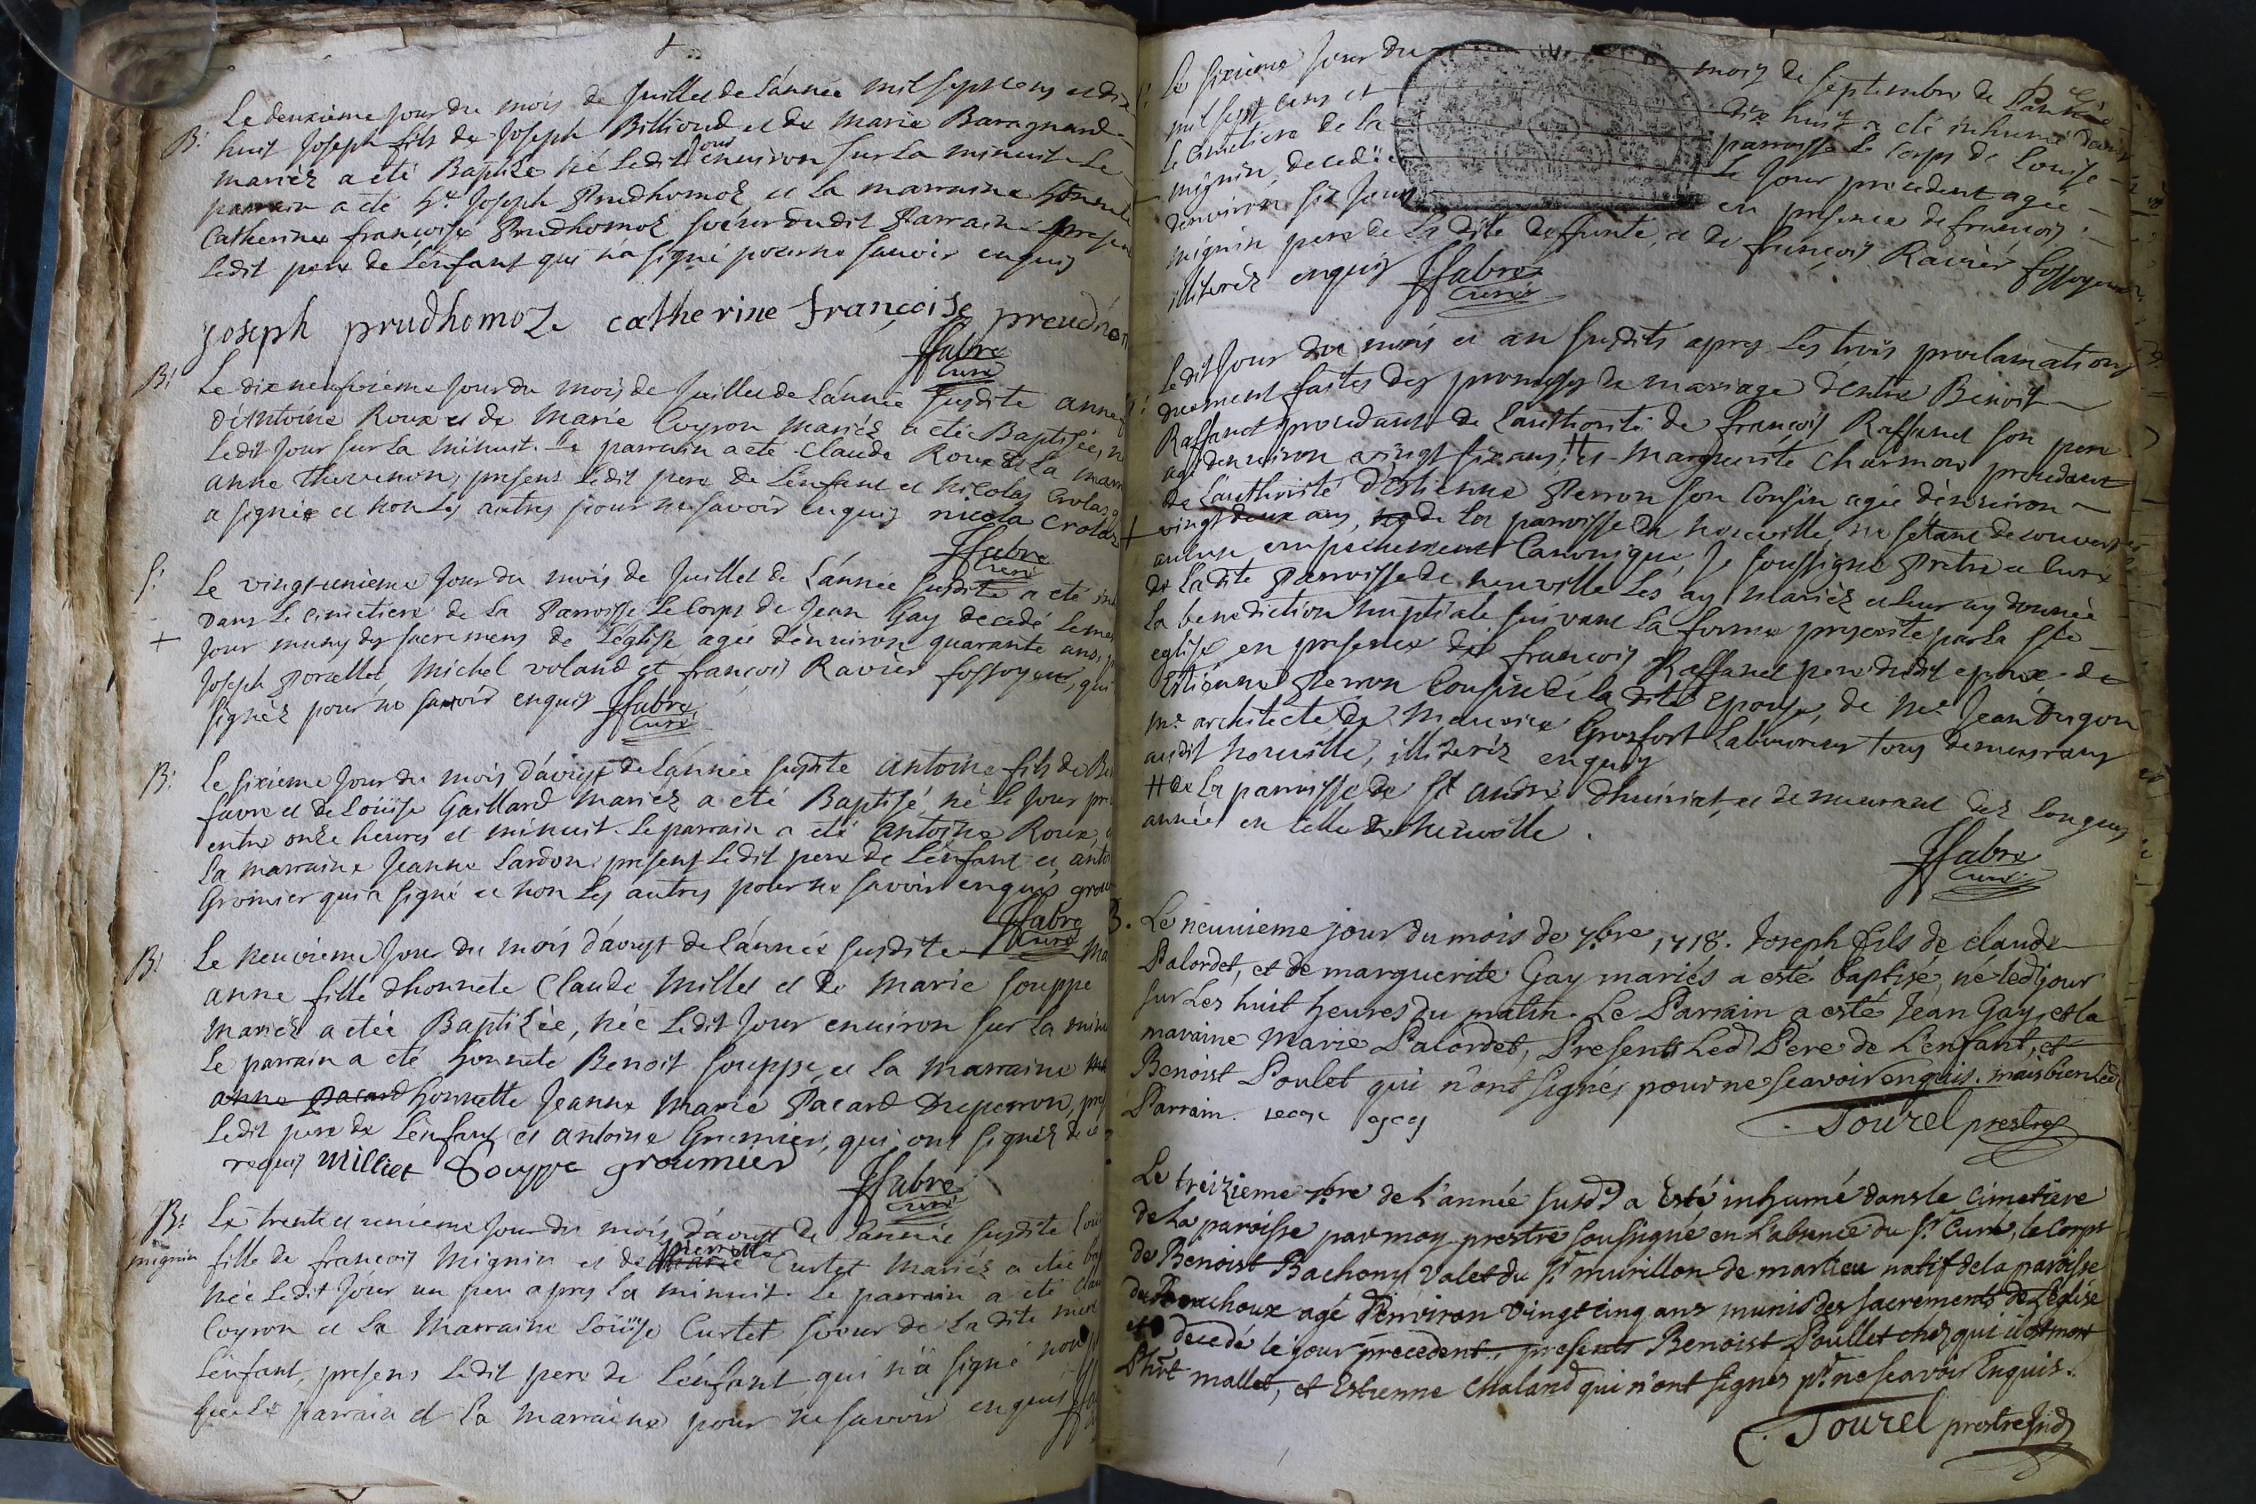 B. Le deuxieme jour du mois de Juillet de L'année mil sept cens et dix
huit Joseph fils de Joseph Billioud et de Marie Baragnard
mariéz a eté Baptizé né Ledit jour environ sur La minuit Le
parrain a eté Sr Joseph Prudhomoz et La marraine honnete
Catherine françoise Prudhomoz soeur dudit Parrain presen
Ledit pere de L'enfant qui n'a signé pour ne savoir enquis
Joseph prudhomoz catherine françoise preudhom
ffabre
Curé
B. Le dix neufvieme jour du mois de Juillet de L'année susdite anne
d'Antoine Roux et de Marie Coyron mariéz a etée Baptisée, n
Ledit jour sur La minuit. Le parrain a eté Claude Roux et La marr
anne Thevenon, presens Ledit pere de L'enfant et Nicolas Crolas q
a signé et non Les autres pour ne savoir enquis nicola Crolas
ffabre
Curé
S. Le vingt-unieme jour du mois de Juillet de L'année susdite a eté in
Dans Le cimetiere de La Parroisse Le Corps de Jean Gay decedé Le mes
+ jour muny des sacremens de L'eglise agée d'environ quarante ans, p
Joseph Porcellet, Michel voland et françois Ravier fossoyeur, qui
signéz pour ne savoir enquis ffabre
Curé
B. Le sixieme jour du mois d'avoust de L'année susdite antoine fils de Be
favre et de Loüise Gaillard mariéz a eté Baptisé, né Le jour pr
entre onze heures et minuit. Le parrain a eté antoine Roux,
La marraine Jeanne Lardon, presens Ledit pere de L'enfant et anto
Gromier qui a signé et non Les autres pour ne savoir enquis grou
ffabre
Curé
B. Le neuvieme jour du mois d'avoust de L'année susdite Ma
anne fille d'honnete Claude Millet et de Marie Souppe
mariéz a etée Baptizée, née Ledit jour environ sur La minu
Le parrain a eté honnete Benoit Souppe, et La marraine
anne Pacard honnette Jeanne Marie Pacard Duperron, pres
Ledit pere de L'enfant et antoine Gromier, qui ont signéz de ce
requis Milliet Souppe groumier
ffabre
Curé
B. Le trente et unieme jour du mois d'avoust de L'année susdite Loü
mignin fille de françois Mignin et de pierrette Curtet mariéz a etée ba
née Ledit jour un peu apres La minuit. Le parrain a eté Clau
Coyron et La Marraine Loüise Curtet soeur de La dite mere
L'enfant, presens Ledit pere de L'enfant qui n'a signé non p
que Le parrain et La marraine pour ne savoir enquis ffa
Le sixieme jour du mois de septembre de L'année
mil sept cens et dix huit a eté inhumé dans
Le cimetiere de La parroisse Le Corps de Louise
mignin, decedée Le jour precedent agée
d'environ six jours en presence de françois
mignin pere de La dite deffunte, et de françois Ravier fossoyeur
illiteréz enquis ffabre
Curé
Ledit jour du mois et an susdits apres Les trois proclamations
duement faites des promesses de mariage d'entre Benoist
Raffanel procedant de L'authorité de françois Raffanel son pere
agé d'environ vingt six ans, # et Marguerite Charmon procedant
de L'authorité d'Estienne Perron son Cousin agée d'environ
+ vingt deux ans, de La parroisse de neuville, ne setant decouvert
aucun empechement Canonique, Je soussigné Pretre et Curé
de La dite Parroisse de neuville Les ay mariéz et leur ay donnée
La benediction nuptiale suivant La forme prescrite par La Ste
eglise en presence de françois Raffanel pere dudit epoux de
Estienne Perron Cousin de La dite epouse, de Me Jean Dugon
Me architecte de Maurice Grosfort Laboureur tous demeurans
audit neuville, illiteréz enquis
# de La parroisse de St andré d'huiriat, et demeurant dez Longues
années en Celle de Neuville.
ffabre
Curé
B. Le neuuieme jour du mois de 7bre 1718. Joseph fils de claude
Palordet, et de marguerite Gay mariés a esté baptisé, né led jour
sur Les huit heures du matin. Le Parrain a esté Jean Gay, et la
maraine Marie Palordet, Presents Led Pere de L'enfant, et
Benoist Poulet qui n'ont signés pour ne scavoir enquis. mais bien Led
Parrain.
Tourel prestre
Le treizieme 7bre de L'année susd a esté inhumé dans le cimetiere
de La paroisse par moy prestre soussigné en L'absence du Sr Curé, le corps
de Benoist Bachony valet du Sr murillon de martieu natif de la paroisse
agé d'environ vingt cinq ans munis des sacrements de L'eglise
et decedé le jour precedent, presents Benoist Poullet chez qui il est mort
Phit mallet, et Estienne Chaland qui n'ont signés pr ne scavoir Enquis.
Tourel prestre